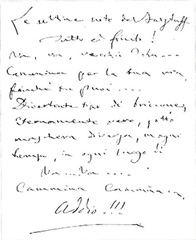 Le ultime note del Falstaff.
Tutto è finito!
Va, va, vecchio John...
Cammina per la tua via,
finchè tu puoi....
Divertente tipo di briccone;
Eternamente vero, sotto
maschera diversa, in ogni
tempo, in ogni luogo!!
Va... Va...
Cammina Cammina...
Addio!!!